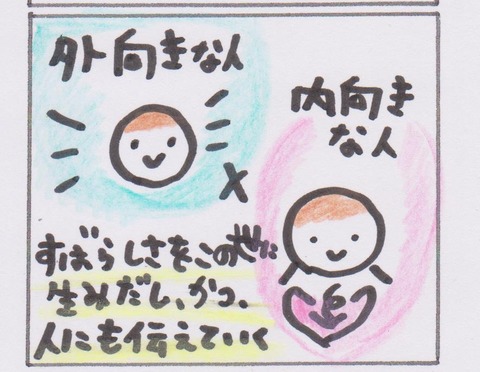 外向きな人
×
内向き
な人
すばらしさをこの世に
生みだし、かつ、
人にも伝えていく